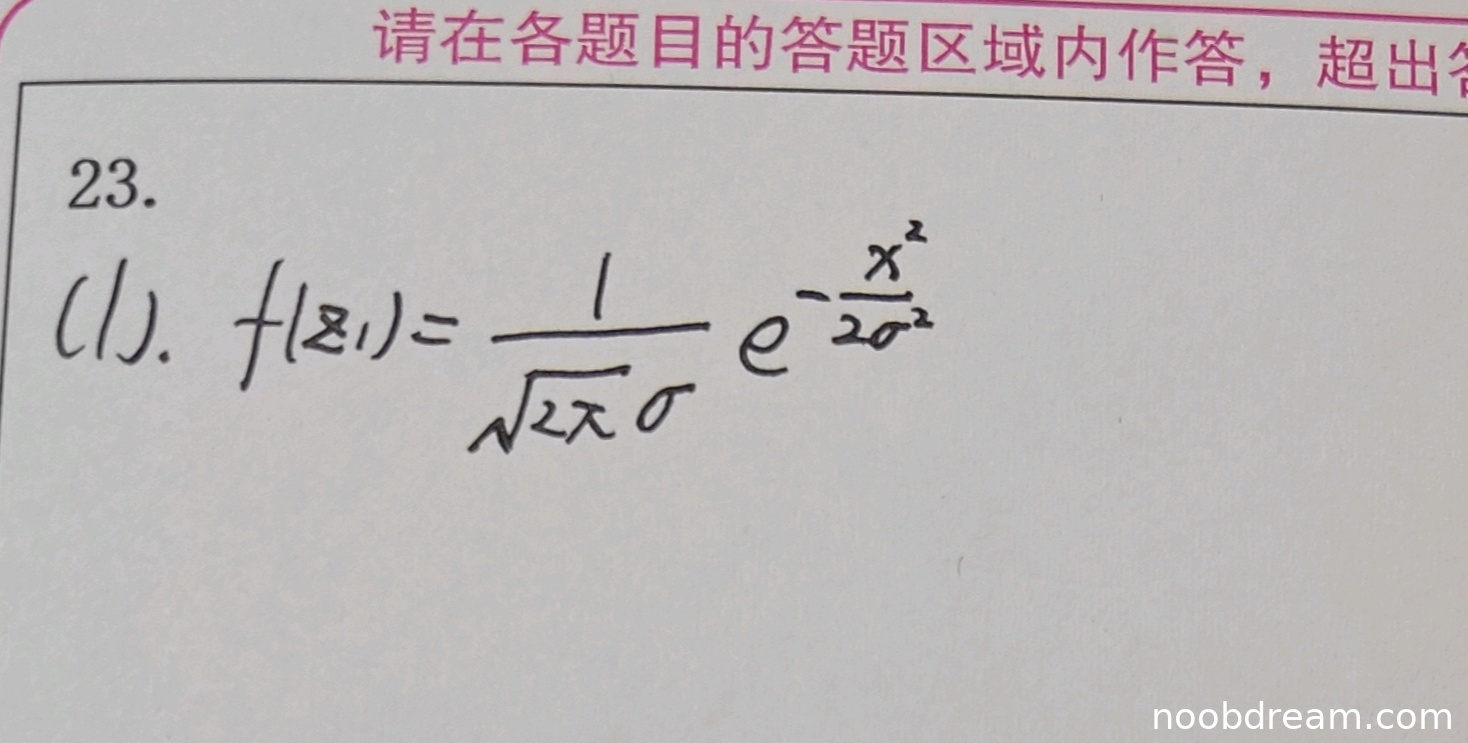 请在各题目的答题区域内作答，超出答
23.
(1). f(z₁) = \frac{1}{\sqrt{2π} σ} e^{-\frac{x^2}{2σ^2}}
noobdream.com